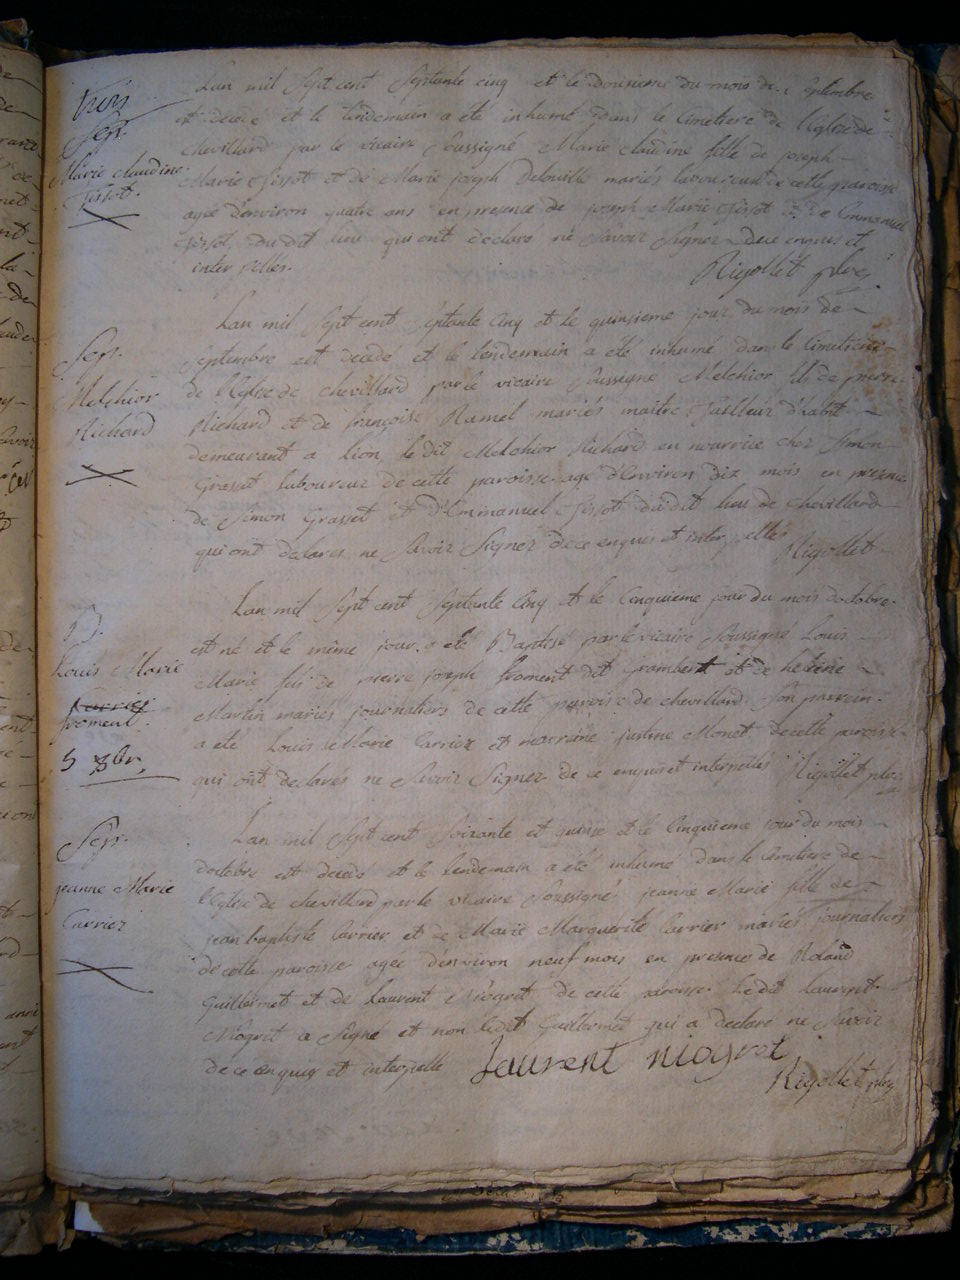 Sep.
Marie claudine
Tissot.
Lan mil Sept cent Septante cinq et le dousieme du mois de Septembre
est decede et le lendemain a été inhumé dans le Cimetiere de l'Eglise de
chevillard par le vicaire Soussigné Marie claudine fille de joseph
Marie Tissot et de Marie joseph Delouille mariés laboureurs de cette paroisse
agée d'environ quatre ans en presence de joseph Marie Tissot et de Emmanuel
Tissot dudit lieu qui ont declaré ne Savoir Signer de ce enquis et
interpellés. Rigollet
Sep.
Melchior
Richard
Lan mil Sept cent Septante Cinq et le quinsieme jour du mois de
Septembre est decédé et le lendemain a été inhumé dans le Cimetiere
de l'Eglise de chevillard par le vicaire Soussigné Melchior fils de pierre
Richard et de françoise Ramel mariés maitre Tailleur d'habit
demeurant a lion le dit Melchior Richard en nourrice chez Simon
Grasset laboureur de cette paroisse agé d'Environ dix mois en presence
de Simon Grasset et d'Emmanuel Tissot dudit lieu de chevillard
qui ont declarés ne Savoir Signer de ce enques et interpellés Rigollet
B.
Louis Marie
froment.
5 8bre
Lan mil Sept cent Septante Cinq et le Cinquieme jour du mois doctobre
est né et le même jour a été Baptisé par le vicaire Soussigné Louis
Marie fils de pierre joseph froment dit jrambert et de
Martin mariés journaliers de cette paroisse de chevillard Son parrein
a été Louis Marie Carrier et marraine justine Monet de cette paroisse
qui ont declarés ne Savoir Signer de ce enquis et interpellés Rigollet
Sep.
jeanne Marie
Carrier
Lan mil Sept cent Soixante et quinse et le Cinquieme jour du mois
doctobre est decedé et le lendemain a été inhumé dans le Cimetiere de
l'Eglise de chevillard par le vicaire Soussigné jeanne Marie fille de
jean baptiste Carrier et de Marie Marguerite Carrier mariés journaliers
de cette paroisse agée d'environ neuf mois en presence de Roland
Guillermet et de Laurent Niogret de cette paroisse Ledit laurent
Niogret a Signé et non ledit Guillermet qui a declaré ne Savoir
de ce enquis et interpellé Laurent niogret
Rigollet